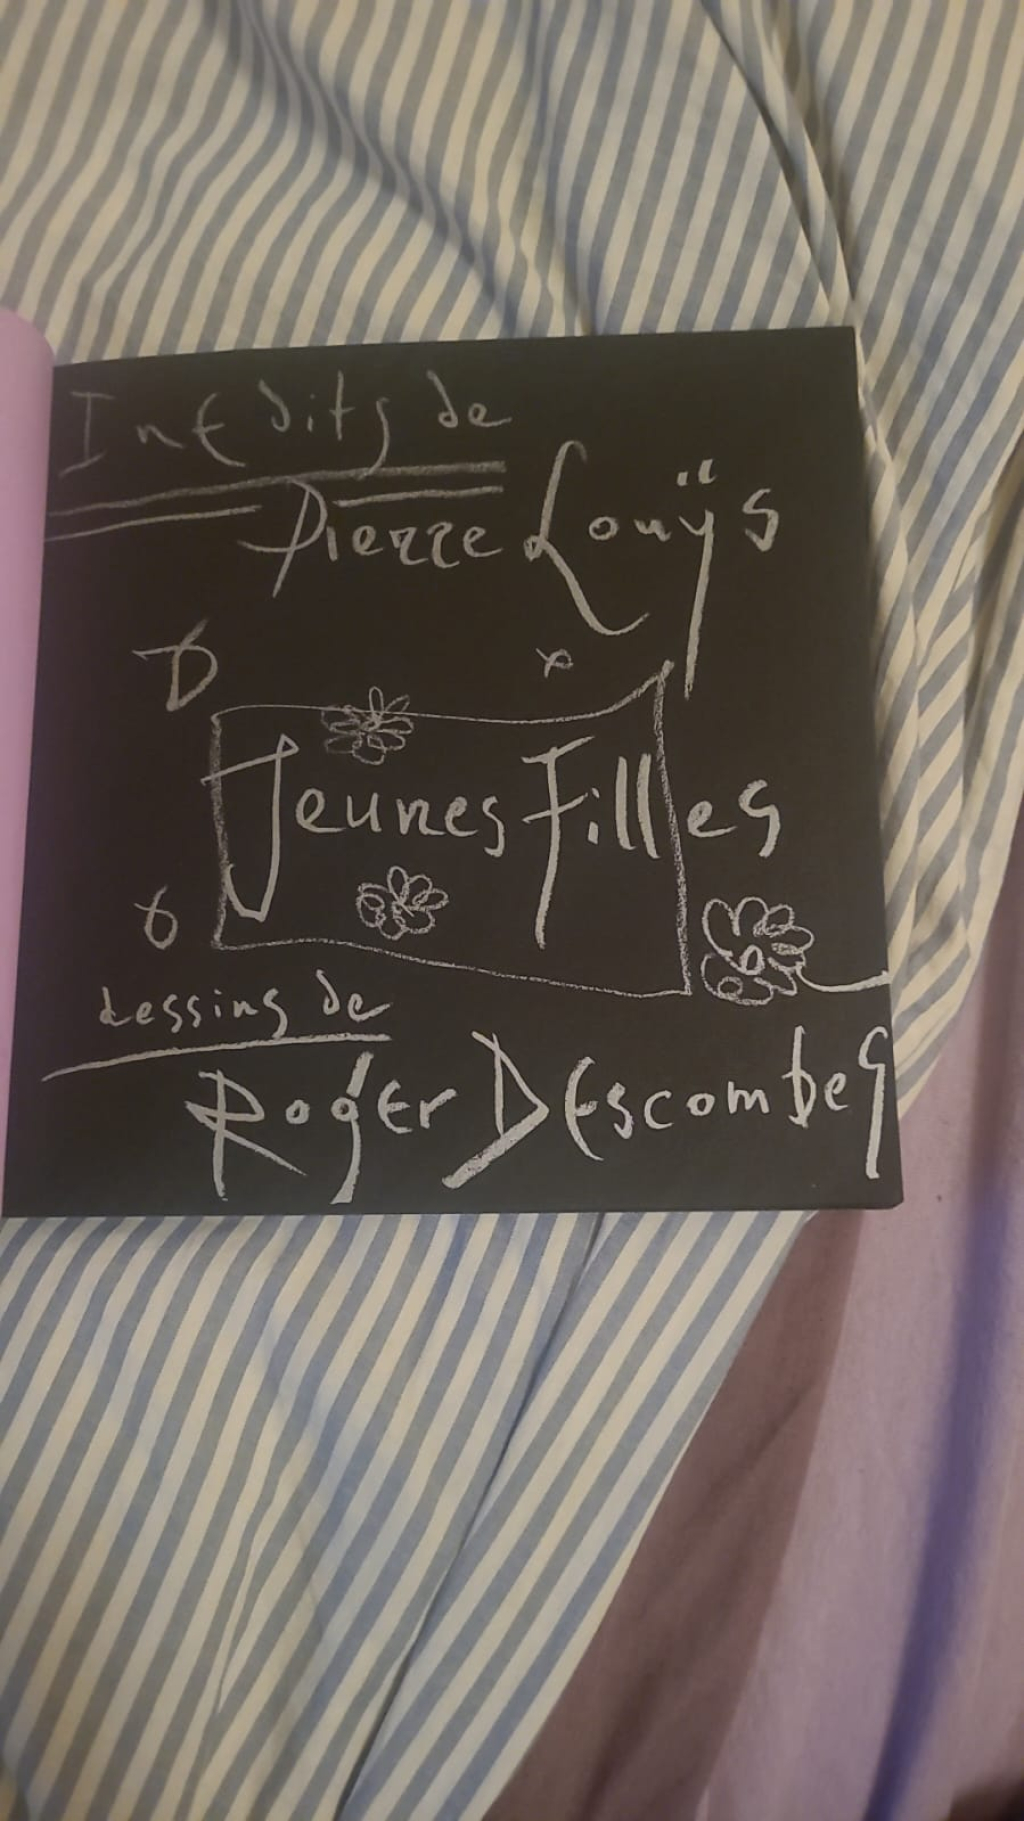 InEdits de
Pierre Louÿs
Jeunes Filles
dessins de
RogEr DEscombes